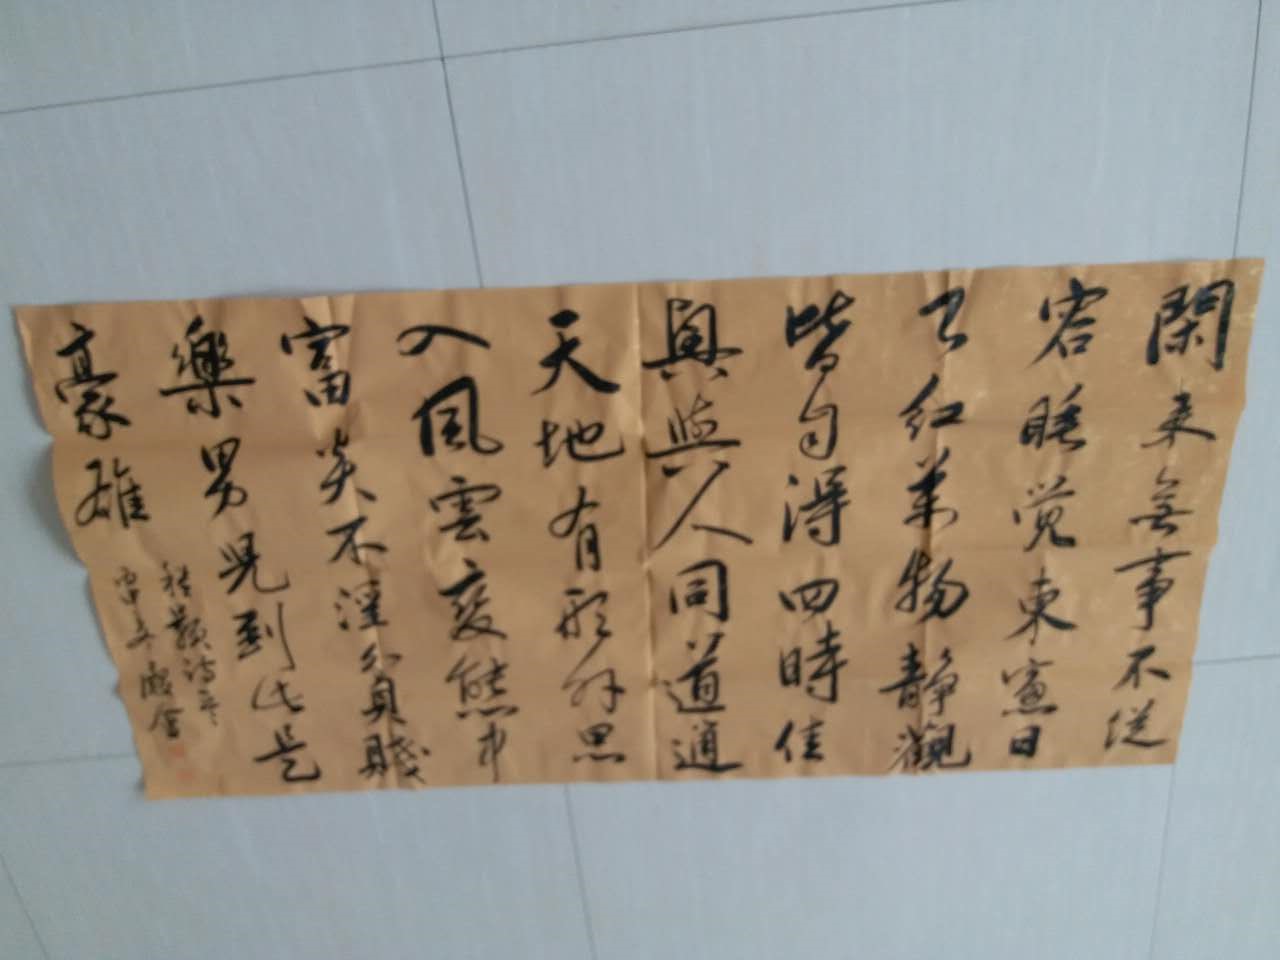 閑来無事不従
容睡觉東窓日
已红萬物静觀
皆自得四時佳
興與人同道通
天地有形外思
入風雲変態中
富贵不淫貧賤
樂男児到此是
豪雄
程颢诗一首